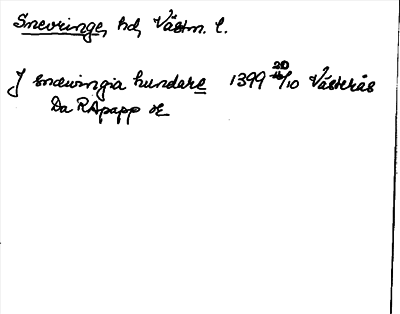 Snevringe, hd, Västm. l.
J snæwingia hundare 1399 20/10 Västerås
Da RApapp